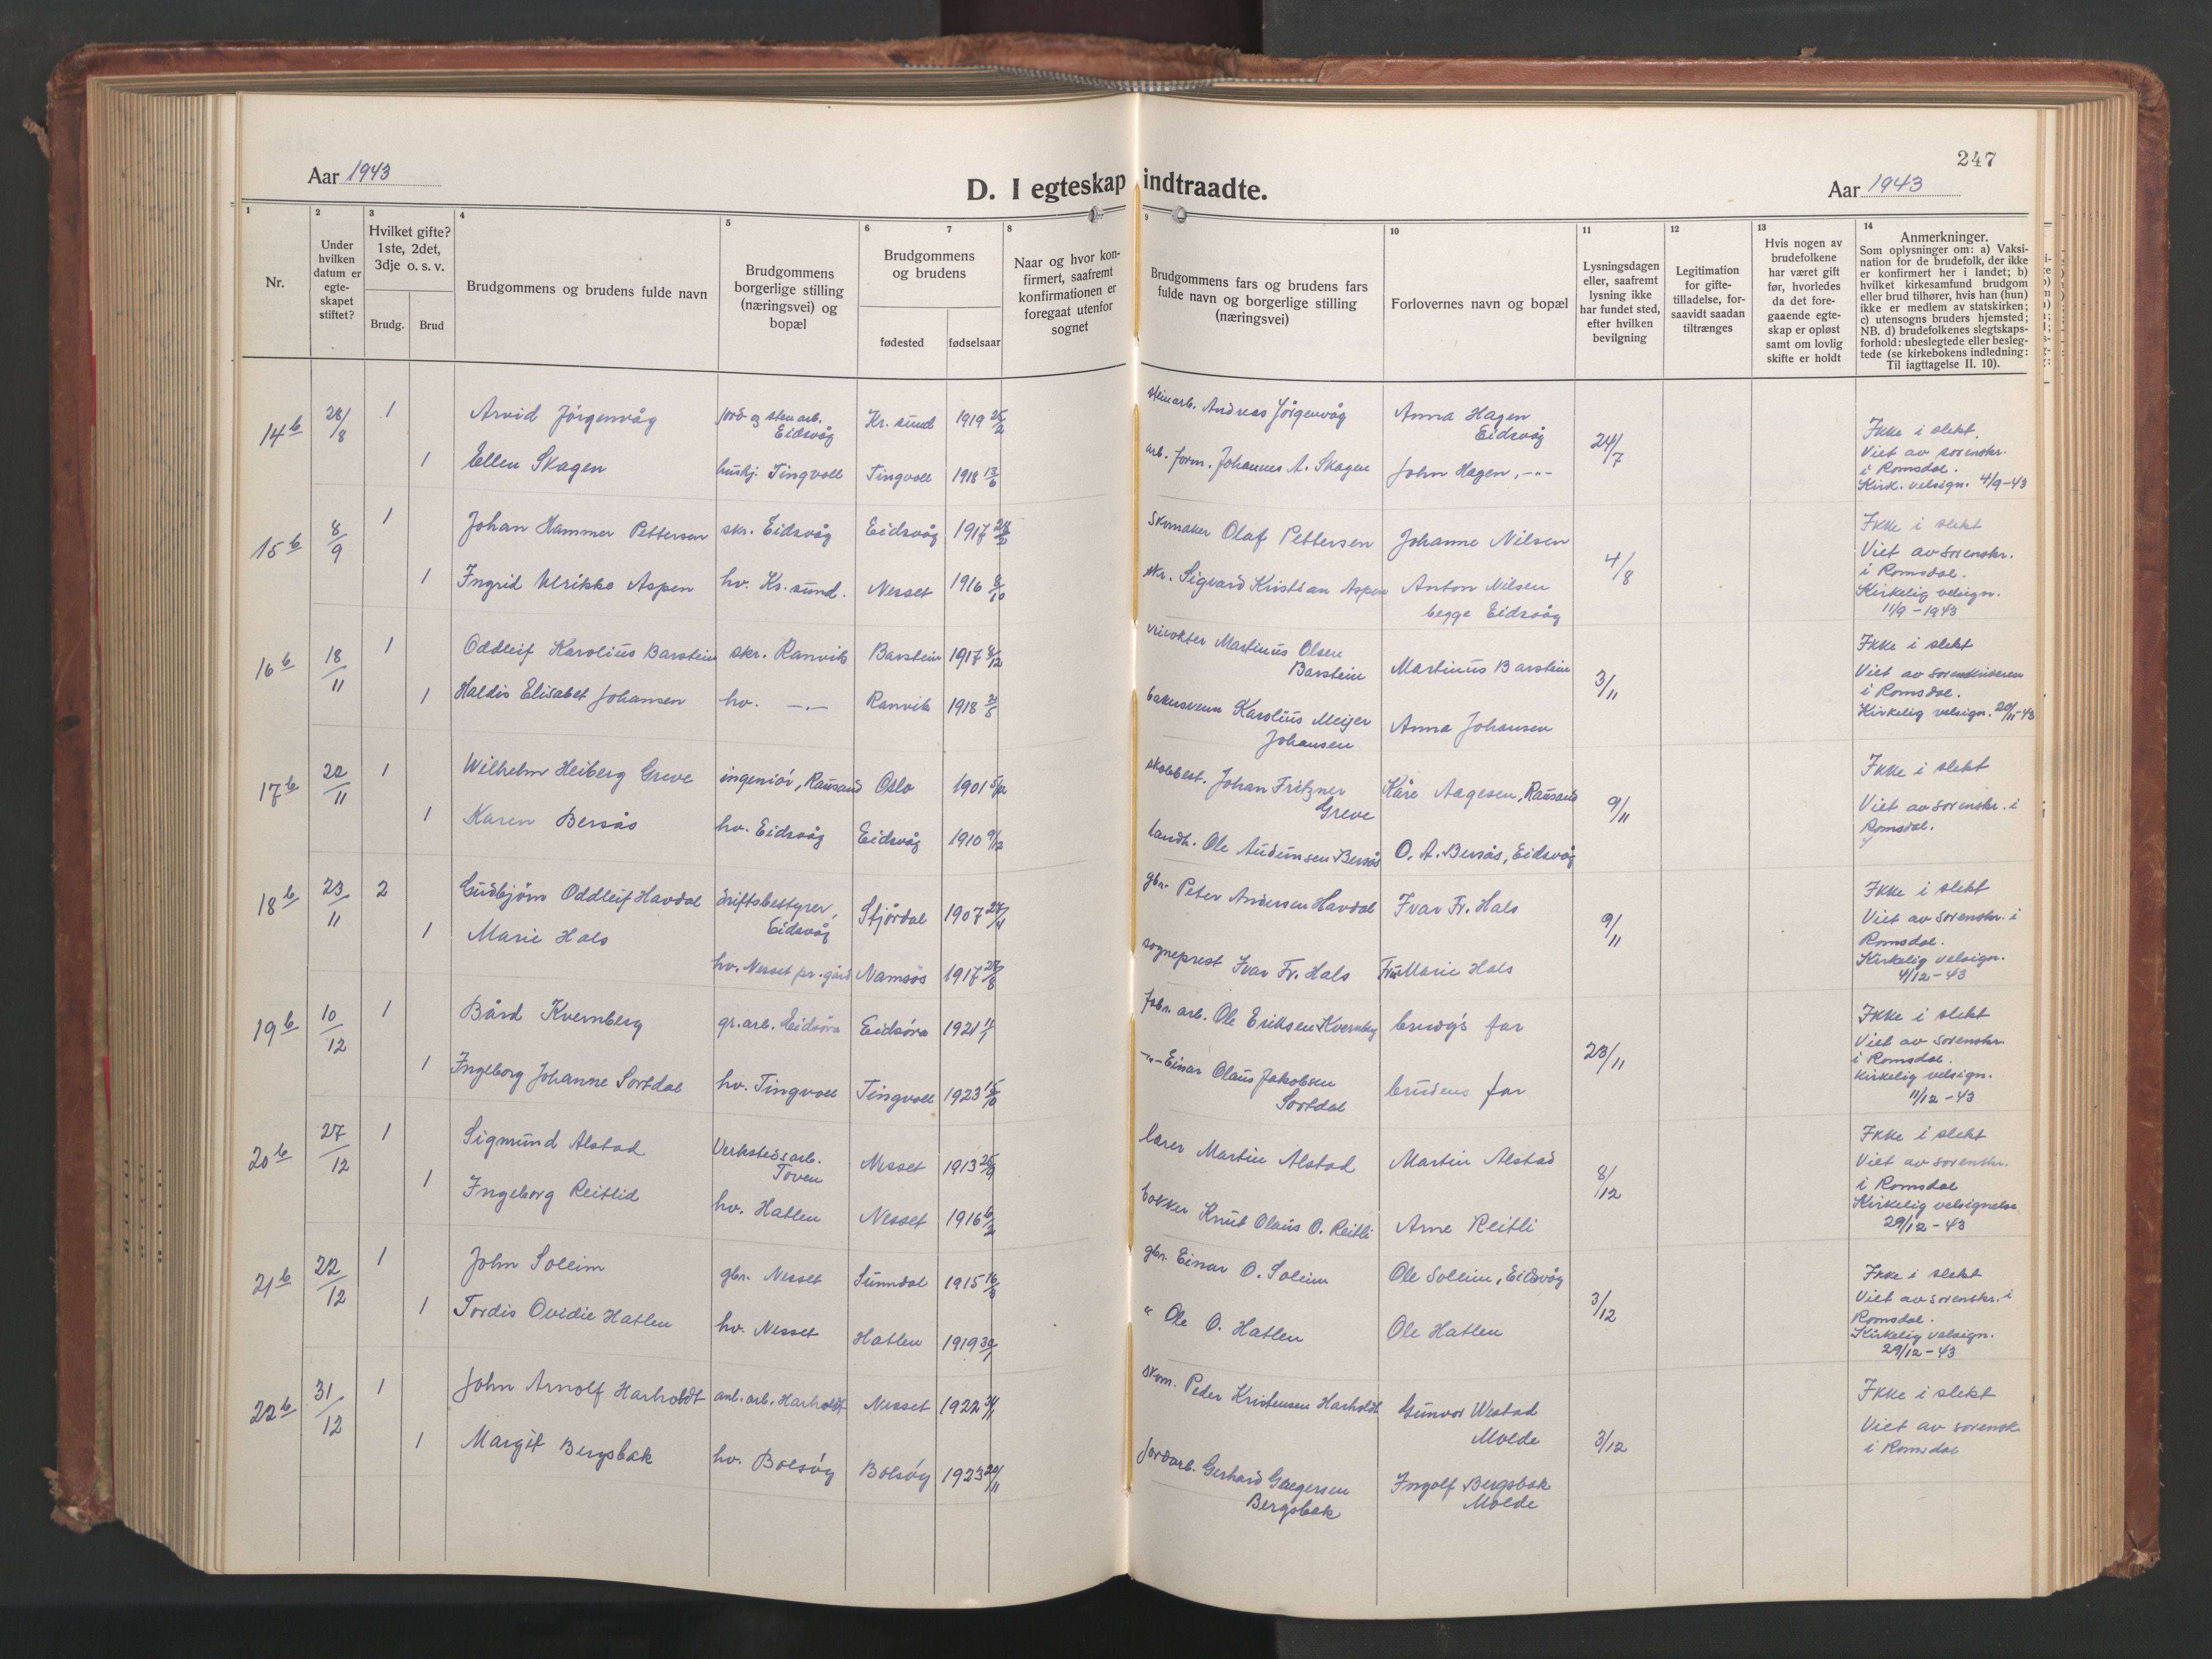 247
Aar 1943
D. I egteskap indtraadte.
Aar 1943
1
2
3
4
5
6
7
8
9
10
11
12
13
14
Nr.
Under hvilken datum er egte-skapet stiftet?
Hvilket gifte? 1ste, 2det, 3dje o. s. v.
Brudg.
Brud
Brudgommens og brudens fulde navn
Brudgommens borgerlige stilling (næringsvei) og bopæl
Brudgommens og brudens
fødested
fødselsaar
Naar og hvor kon-firmert, saafremt konfirmationen er foregaat utenfor sognet
Brudgommens fars og brudens fars fulde navn og borgerlige stilling (næringsvei)
Forlovernes navn og bopæl
Lysningsdagen eller, saafremt lysning ikke har fundet sted, efter hvilken bevilgning
Legitimation for gifte-tilladelse, for-saavidt saadan tiltrænges
Hvis nogen av brudefolkene har været gift før, hvorledes da det fore-gaaende egte-skap er opløst samt om lovlig skifte er holdt
Anmerkninger.
Som oplysninger om: a) Vaksi-nation for de brudefolk, der ikke er konfirmert her i landet; b) hvilket kirkesamfund brudgom eller brud tilhører, hvis han (hun) ikke er medlem av statskirken; c) utensogns bruders hjemsted; NB. d) brudefolkenes slegtskaps-forhold: ubeslegtede eller besleg-tede (se kirkebokens indledning: Til iagttagelse II. 10).
14 b 28/8 1 Arvid Jörgenvåg jord og sten arb. Eidsvåg Kr. sund 1919 25/2 steinarb. Andreas Jörgenvåg Anna Hagen Eidsvåg 24/7
1 Ellen Skagen hushj. Tingvoll Tingvoll 1918 13/6 arb. form. Johannes A. Skagen John Hagen, -"-
Ikke i slekt.
Viet av sorenskr.
i Romsdal.
Kirk. velsign. 4/9-43
15 b 8/9 1 Johan Hammer Pettersen skr. Eidsvåg Eidsvåg 1917 Skomaker Olaf Pettersen Johanne Nilsen 4/8
1 Ingrid Ulrikke Aspen hv. Kr. sund. Nesset 1916 8/10 skr. Sigvard Kristian Aspen Anton Nilsen
begge Eidsvåg
Ikke i slekt
Viet av sorenskr.
i Romsdal.
Kirkelig velsign.
11/9-1943
16 b 18/11 1 Oddleif Karolius Barstein skr. Ranvik Barstein 1917 8/12 Martinus Olsen Barstein Martinus Barstein 3/11
1 Haldis Elisabet Johansen hv. -"- Ranvik 1918 bakersvenn Karolius Meijer Johansen Anna Johansen
Ikke i slekt
Viet av sorenskriveren
i Romsdal.
Kirkelig velsign. 20/11-43
17 b 22/11 1 Wilhelm Heiberg Greve ingeniör, Rausand Oslo 1901 skobbest. Johan Fritzner Greve Kåre Aagesen, Rausand 9/11
1 Karen Bersås hv. Eidsvåg Eidsvåg 1910 9/12 landh. Ole Audunsen Bersås O. A. Bersås, Eidsvåg
Ikke i slekt
Viet av sorenskr. i
Romsdal.
18 b 23/11 2 Gudbjörn Oddleif Havdal driftsbestyrer, Eidsvåg Sfjördal 1907 27/4 gbr. Peter Andersen Havdal Ivar Fr. Hals 9/11
1 Marie Hals hv. Nesset pr. gård Namsos 1917 sogneprest Ivar Fr. Hals Fru Marie Hals
Ikke i slekt
Viet av sorenskr. i
Romsdal.
Kirkelig velsign.
4/12-43
19 b 10/12 1 Bård Kvernberg gr. arb. Eidsöra Eidsöra 1921 fabr. arb. Ole Eriksen Kvernberg brudg's far 23/11
1 Ingeborg Johanne Sortdal hv. Tingvoll Tingvoll 1923 15/10 -"- Einar Olaus Jakobsen Sortdal brudens far
Ikke i slekt
Viet av sorenskr.
i Romsdal.
Kirkelig velsign.
11/12-43
20 b 27/12 1 Sigmund Alstad Verkstedsarb. Toven Nesset 1913 lærer Martin Alstad Martin Alstad 8/12
1 Ingeborg Reitlid hv. Hatlen Nesset 1916 6/2 Knut Olaus O. Reitli Arne Reitli
Ikke i slekt
Viet av sorenskr.
i Romsdal
Kirkelig velsignelse
29/12-43
21 b 22/12 1 John Soleim gbr. Nesset Sunndal 1915 gbr. Einar O. Soleim Ole Soleim, Eidsvåg 3/12
1 Tordis Ovidie Hatlen hv. Nesset Hatlen 1919 30/1 " Ole O. Hatlen Ole Hatlen
Ikke i slekt
Viet av sorenskr. i
Romsdal.
Kirkelig velsign.
29/12-43
22 b 31/12 1 John Arnolf Harholdt anl. arb. Harholdt Nesset 1922 skom. Peder Kristensen Harholdt Gunvor Westad Molde 3/12
1 Margit Bergsbak hv. Bolsöy Bolsöy 1923 20/11 jordarb. Gerhard Gregersen Bergsbak Ingolf Bergsbak Molde
Ikke i slekt
Viet av sorensk.
i Romsdal